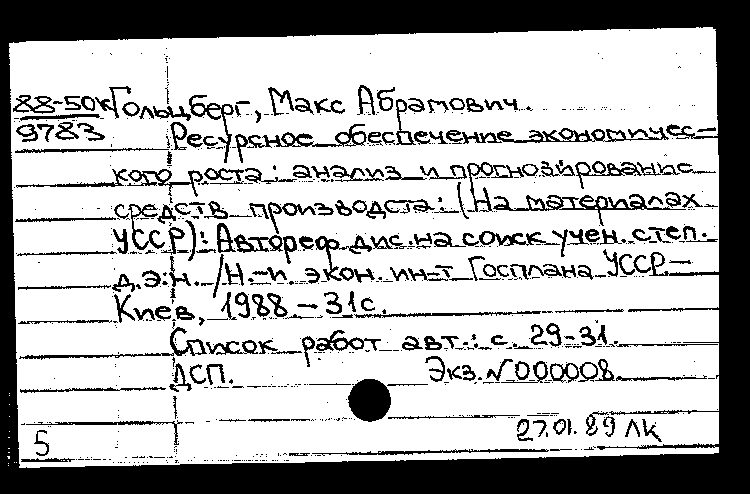 88-50к Гольцберг, Макс Абрамович.
9783 Ресурсное обеспечение экономичес-
кого роста: анализ и прогнозирование
средств производста: (На материалах
УССР): Автореф. дис. на соиск учен. степ.
д.э.н. /Н.-и. экон. ин-т Госплана УССР.—
Киев, 1988. – 31с.
Список работ авт.: с. 29-31.
ДСП. Экз. № 000008.
27.01.89 ЛК
5